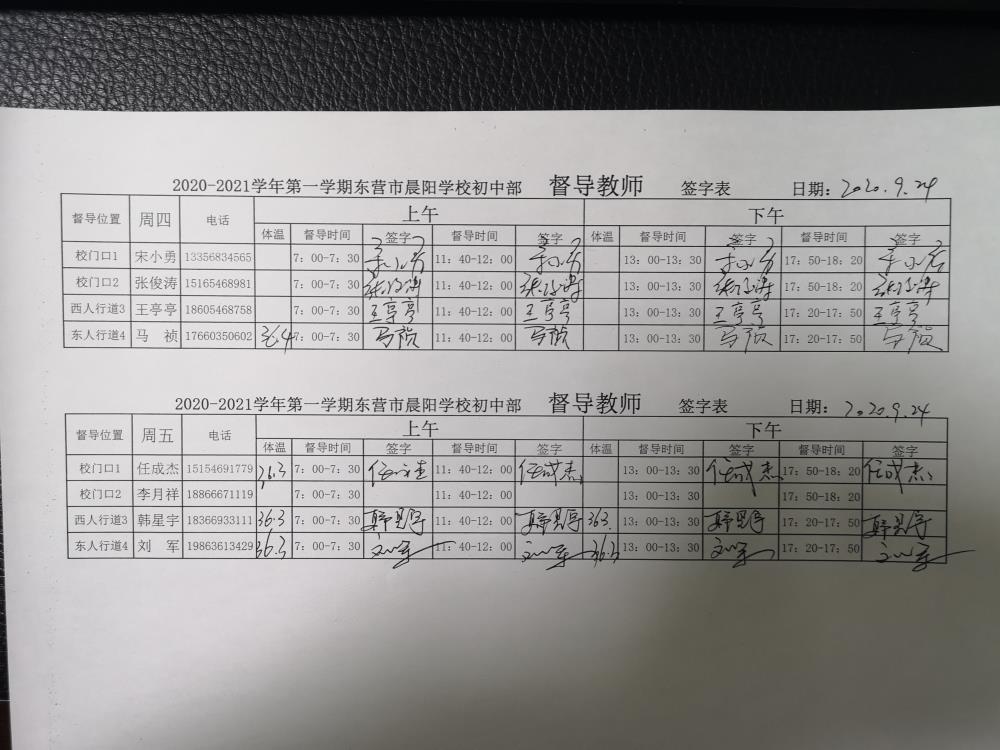 2020-2021学年第一学期东营市晨阳学校初中部 督导教师 签字表 日期：2020.9.24
督导位置 周四 电话 上午 下午
体温 督导时间 签字 督导时间 签字 体温 督导时间 签字 督导时间 签字
校门口1 宋小勇 13356834565 7：00-7：30 宋小勇 11：40-12：00 宋小勇 13：00-13：30 宋小勇 17：50-18：20 宋小勇
校门口2 张俊涛 15165468981 7：00-7：30 张俊涛 11：40-12：00 张俊涛 13：00-13：30 张俊涛 17：50-18：20 张俊涛
西人行道3 王亭亭 18605468758 7：00-7：30 王亭亭 11：40-12：00 王亭亭 13：00-13：30 王亭亭 17：20-17：50 王亭亭
东人行道4 马 祯 17660350602 36.4 7：00-7：30 马祯 11：40-12：00 马祯 13：00-13：30 马祯 17：20-17：50 马祯
2020-2021学年第一学期东营市晨阳学校初中部 督导教师 签字表 日期：2020.9.24
督导位置 周五 电话 上午 下午
体温 督导时间 签字 督导时间 签字 体温 督导时间 签字 督导时间 签字
校门口1 任成杰 15154691779 36.3 7：00-7：30 任成杰 11：40-12：00 任成杰 13：00-13：30 任成杰 17：50-18：20 任成杰
校门口2 李月祥 18866671119 7：00-7：30 11：40-12：00 13：00-13：30 17：50-18：20
西人行道3 韩星宇 18366933111 36.3 7：00-7：30 韩星宇 11：40-12：00 韩星宇 363. 13：00-13：30 韩星宇 17：20-17：50 韩星宇
东人行道4 刘 军 19863613429 36.3 7：00-7：30 刘军 11：40-12：00 刘军 36.3 13：00-13：30 刘军 17：20-17：50 刘军